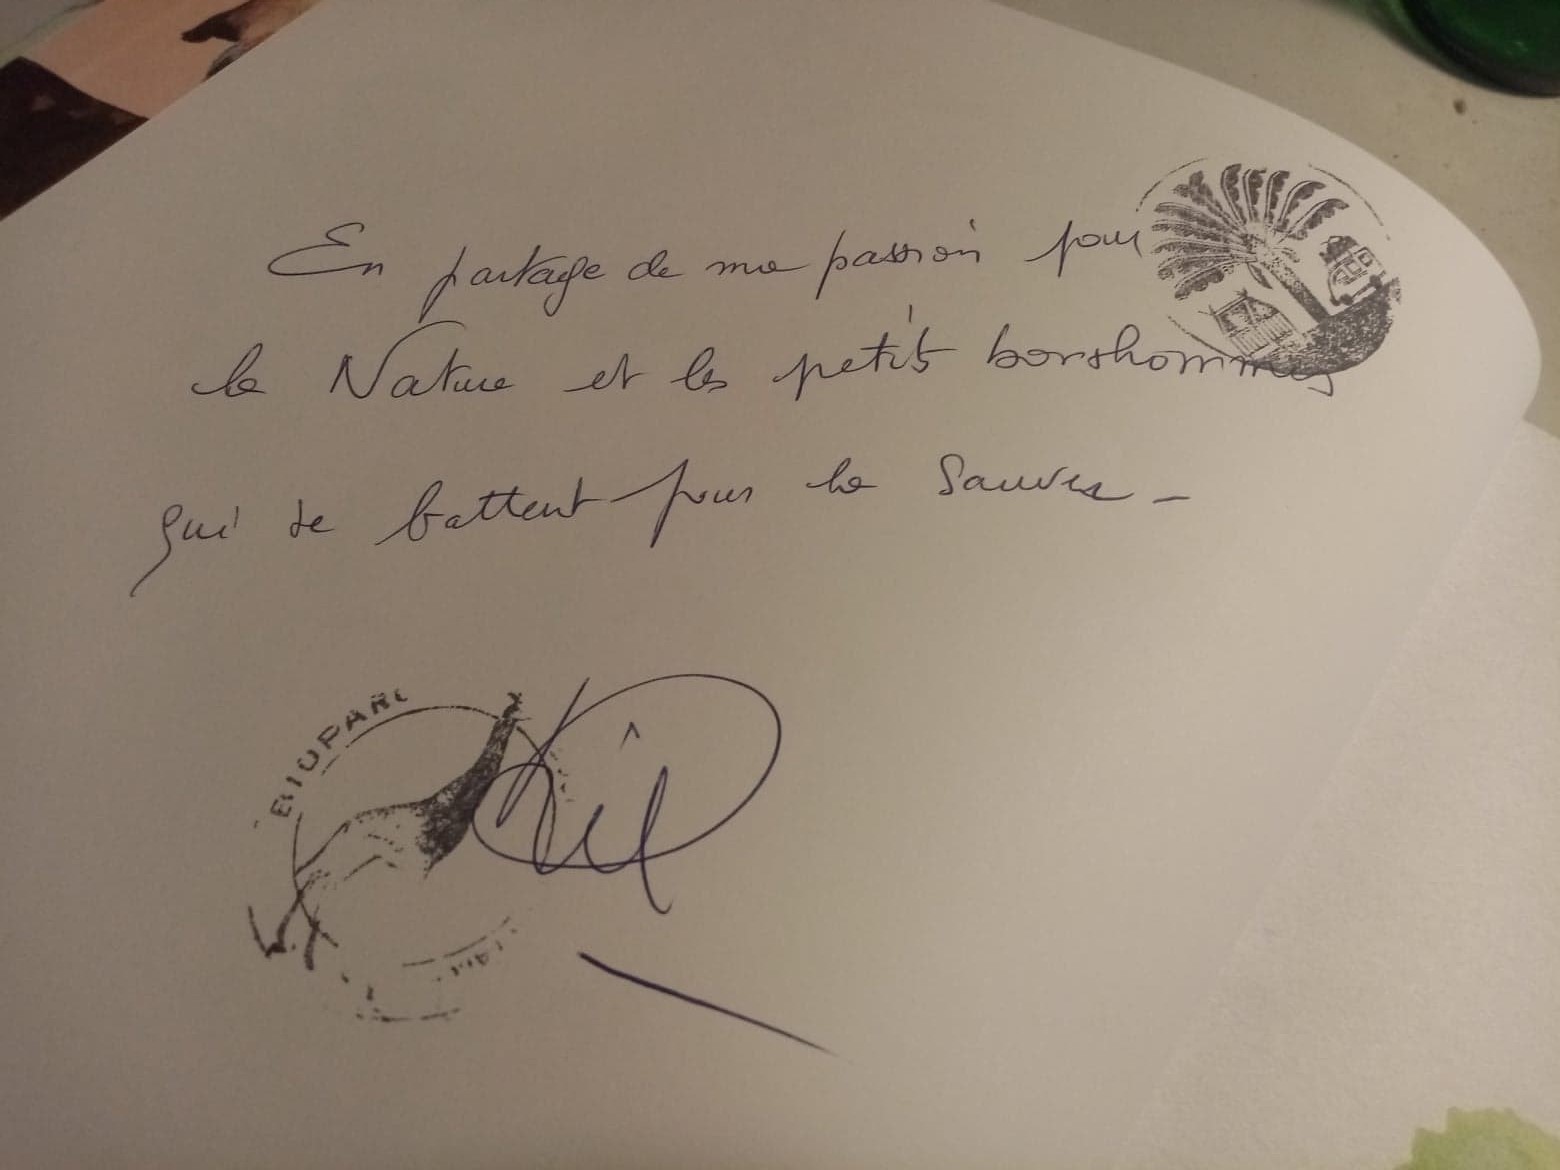 En partage de ma passion pour
la Nature et les petits bonshommes
qui se battent pour la Sauver -
BIOPARC